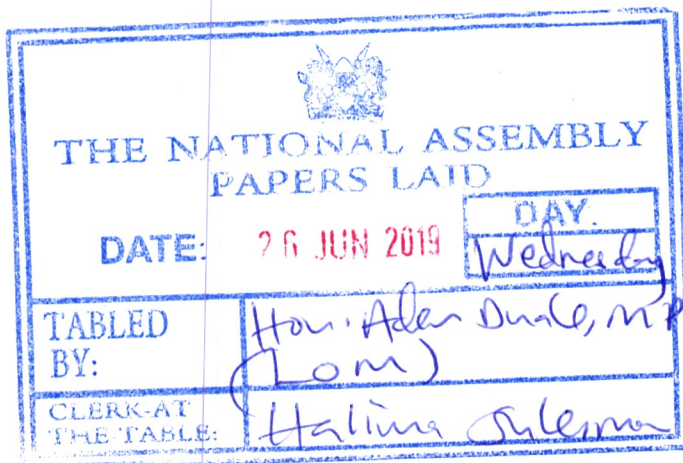 THE NATIONAL ASSEMBLY
PAPERS LAID
DATE: 26 JUN 2019
DAY.
Wednesday
TABLED BY: Hon. Aden Duale, MP
(LOM)
CLERK-AT THE-TABLE: Halima